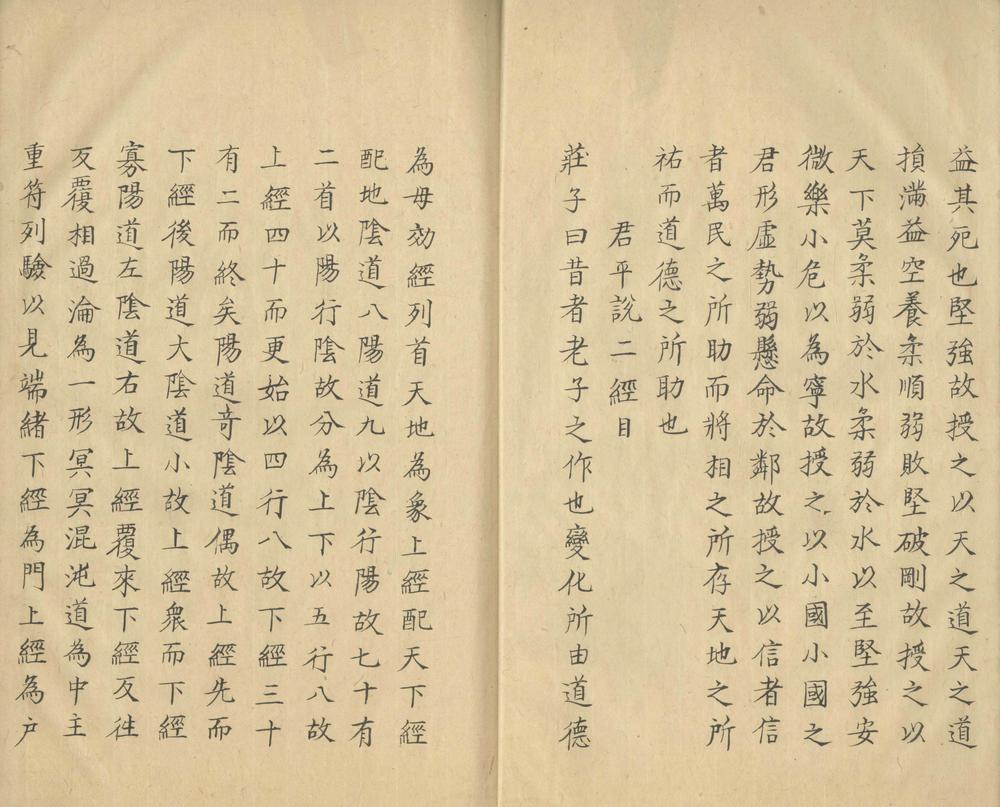 益其死也堅強故授之以天之道天之道
損滿益空養柔順弱敗堅破剛故授之以
天下莫柔弱於水柔弱於水以至堅強安
微樂小危以為寧故授之以小國小國之
君形虛勢弱懸命於鄰故授之以信者信
者萬民之所助而將相之所存天地之所
祐而道德之所助也
君平說二經目
莊子曰昔者老子之作也變化所由道德
為母効經列首天地為象上經配天下經
配地陰道八陽道九以陰行陽故七十有
二首以陽行陰故分為上下以五行八故
上經四十而更始以四行八故下經三十
有二而終矣陽道奇陰道偶故上經先而
下經後陽道大陰道小故上經衆而下經
寡陽道左陰道右故上經覆來下經反往
反覆相過淪為一形冥冥混沌道為中主
重符列驗以見端緒下經為門上經為户